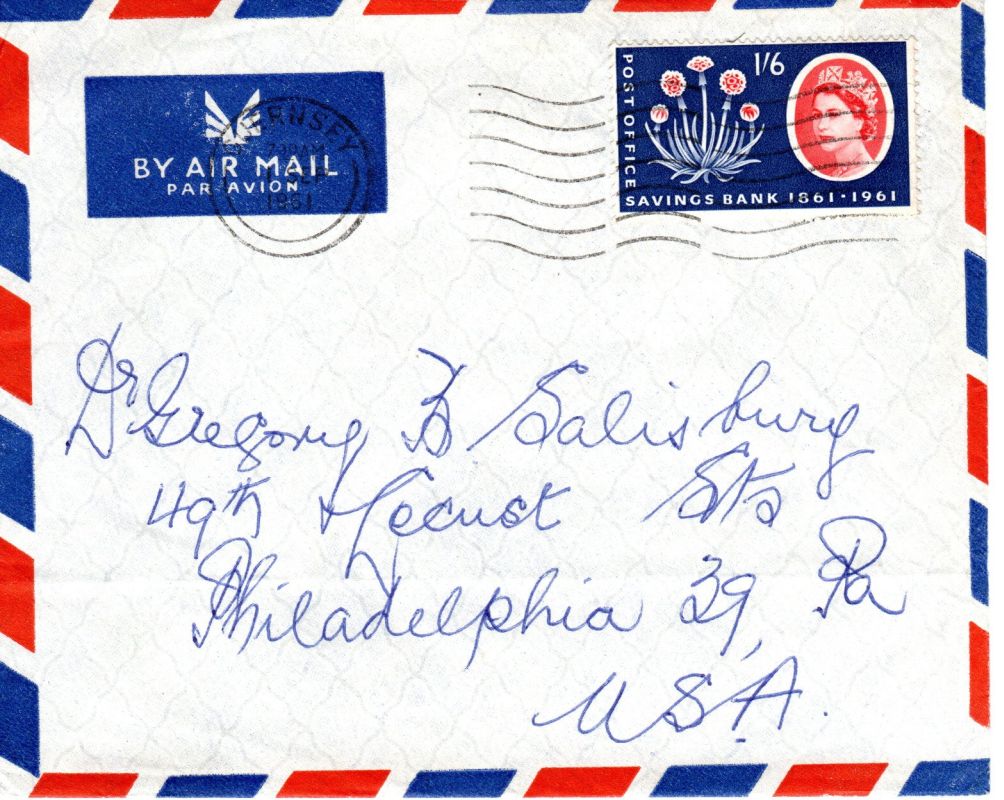 BY AIR MAIL
PAR AVION
1961
POST OFFICE
1/6
SAVINGS BANK 1861·1961
Dr Gregory B Salisbury
49th & Locust Sts
Philadelphia 39, Pa
U.S.A.